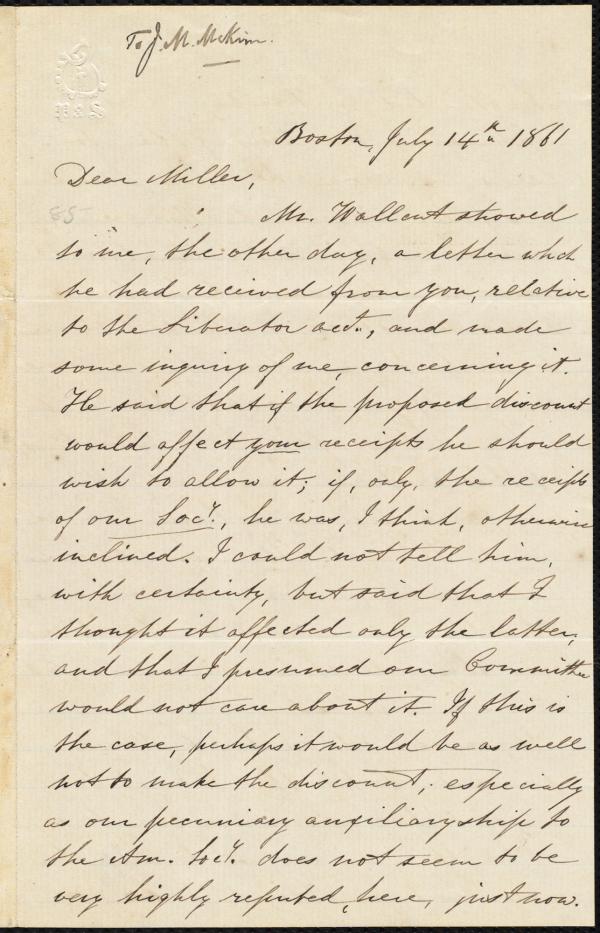 To J. M. McKim.
Boston, July 14th 1861
Dear Miller,
85
Mr. Wallcut showed
to me, the other day, a letter which
he had received from you, relative
to the Liberator acct., and made
some inquiry of me, concerning it.
He said that if the proposed discount
would affect your receipts he should
wish to allow it; if, only, the receipts
of our Socy., he was, I think, otherwise
inclined. I could not tell him,
with certainty, but said that I
thought it affected only the latter,
and that I presumed our Committee
would not care about it. If this is
the case, perhaps it would be as well
not to make the discount; especially
as our pecuniary auxiliaryship to
the Am. Socy. does not seem to be
very highly reputed, here, just now.